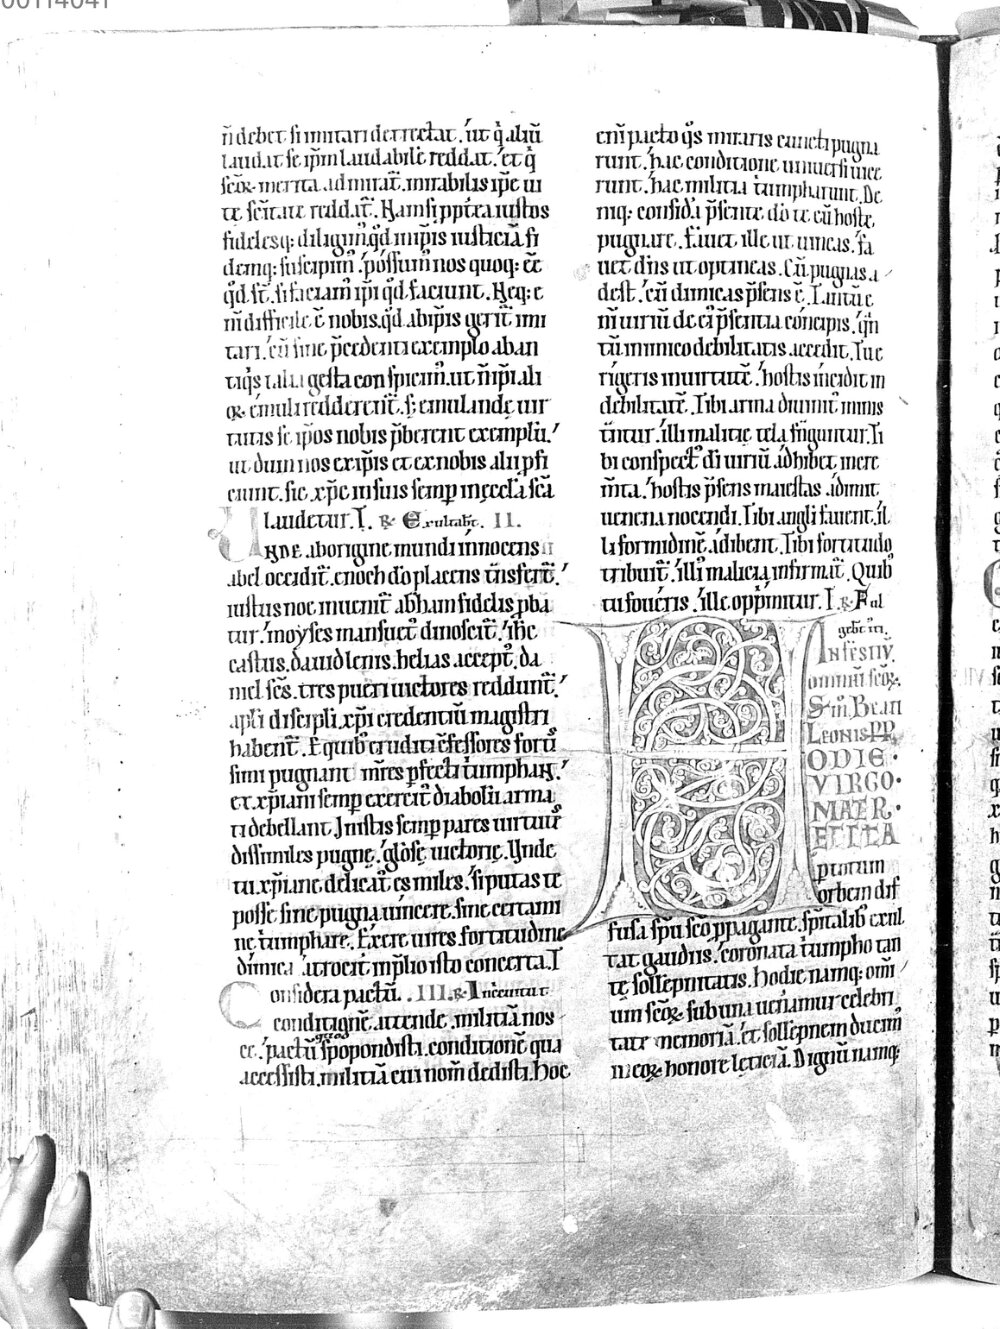 n̄ debet si imitari detrectat. ut q̇ aliū
laudat se ip̄m laudabilē reddat. et q̇
sc̄oꝝ merita admirat̄. mirabilis ip̄e ui
te sc̄itate reddat̄. Nam si ppt̄ea iustos
fidelesq; diligim̄. qd̄ in ip̄is iusticiā fi
demq; suscipim̄. possum̄ nos quoq; eē
qd̄ st̄. si faciam̄ ip̄i qd̄ faciunt. Neq; e
ni̅ difficile ē nobis. qd̄ ab ip̄is gerit̄ imi
tari. cū sine p̄cedenti exemplo aban
tiq̇s talia gesta conspicim̄. ut n̄ ip̄i ali
oꝝ emuli redderent̄. s; emulande uir
tutis se ip̄os nobis p̄berent exemplū.
ut dum nos ex ip̄is et ex nobis alii pfi
ciunt. sic xp̄c in suis semp in ęcclā scā
laudetur. T. ℟ Exultabt̄. II.
UNDE ab origine mundi innocens
abel occidit̄. enoch do placens t̄nsfert̄.
iustus noe inuenit̄ abham fidelis pba
tur. moyses mansuet̄ dinoscit̄. ih̄c
castus. dauid lenis. helias accept̄. da
niel sc̄s. tres pueri uictores reddunt̄.
apl̄i discipli xp̄i credentiū magistri
habent̄. E quib; eruditi c̄fessores forti
simi pugnant mr̄es pfecti t̄umphaɴ̄.
et xp̄iani semp exercit̄ diabolū arma
ti debellant. In istis semp pares uirtut̄
dissimiles pugnę. gloṡę uictorię. Unde
tu xp̄iane delicat̄ es miles. si putas te
posse sine pugna uincere. sine certami
ne t̄umphare. Exere uires fortitudine
dimica. atrocit̄ in p̄lio isto concerta. T
Considera pactū. III. ℟ Iñcenitat̄
conditionē. attende. militiā nos
ce. pactū q̇d spopondisti. conditionē qua
accessisti. militiā cui nom̄ dedisti. Hoc
eni̅ pacto q̇s miraris cuncti pugna
runt. hac conditione uniuersi uice
runt. hac militia t̄umpharunt. De
niq; confidi p̄sente do te cū hoste
pugnare. Fauet ille ut uincas. fa
uet dn̄s ut optineas. Cū pugnas a
dest. cū dimicas p̄sens ē. Tantūe
ni̅ uiriū de ei p̄sentia concipis. q̇n
tū inimico debilitatis accedit. Tu e
rigeris in uirtutē. hostis incidit in
debilitatē. Tibi arma diuinit̄ minis
t̄ntur. illi malitię tela fr̄inguntur. Ti
bi conspect̄ di uiriū adhibet incre
m̄ta. hosti p̄sens maiestas adimit
uenena nocendi. Tibi angli fauent. il
li formidinē adibent. Tibi fortitudo
tribuit̄. illi malicia infirmat̄. Quib
tu foueris. ille opprimitur. T. ℟ Ful
gebt̄ iu.
IN festiv̄.
omniū sc̄oꝝ.
Sm̄. Beati
Leonis PP.
HODIE
VIRGO
MATER
ECCLA
p totum
orbem dif
fusa sp̄u sc̄o ppagante. sp̄italib exul
tat gaudiis. coronata t̄umpho tan
tę sollepnitatis. Hodie namq; om̄i
um sc̄oꝝ sub una ueneramur celebri
tate memoriā. et sollepnem ducim̄
in eoꝝ honore lęticiā. Dignū namq;